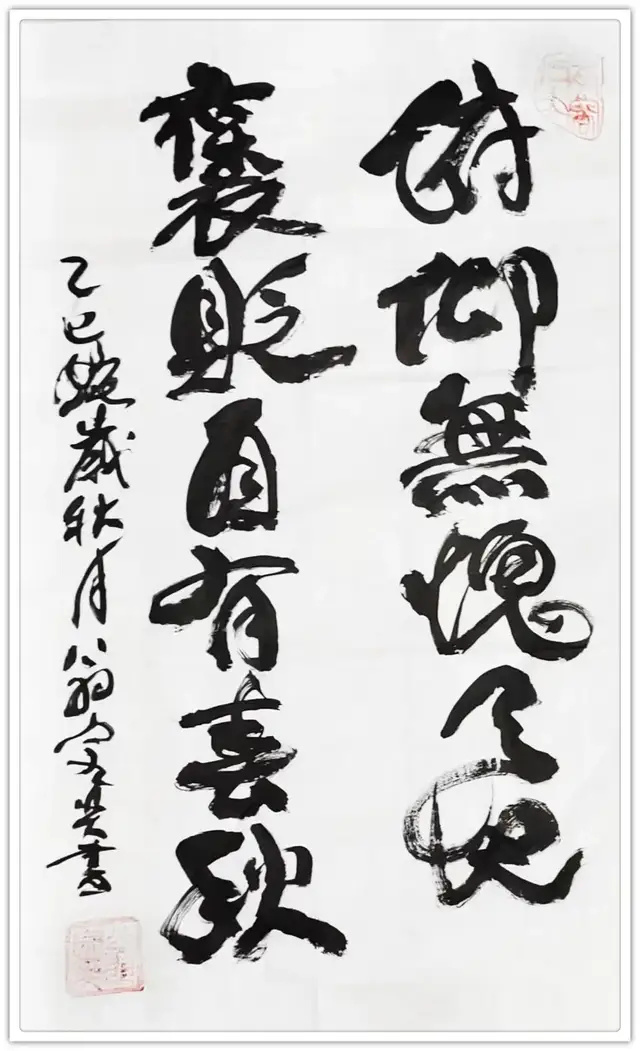 俯仰無愧天地
褒貶自有春秋
乙巳蛇歲秋月翁宏書